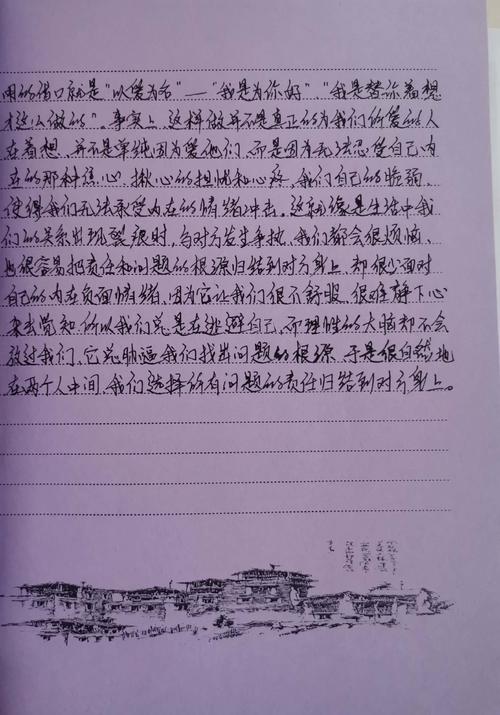 用的借口就是“以爱为名”—“我是为你好”、“我是替你着想
才这么做的”。事实上，这样做并不是真正的为我们所爱的人
在着想，并不是单纯因为爱他们，而是因为无法忍受自己内
在的那种焦心、揪心的担忧和心疼，我们自己的脆弱，
使得我们无法承受内在的情绪冲击。这就像是生活中我
们的关系出现裂痕时，与对方发生争执，我们都会很烦恼、
也很容易把责任和问题的根源归结到对方身上，却很少面对
自己的内在负面情绪，因为它让我们很不舒服，很难静下心
来去觉知，所以我们总是在逃避自己，而理性的大脑却不会
放过我们，它总胁逼我们找出问题的根源，于是很自然地
在两个人中间，我们选择所有问题的责任归结到对方身上。